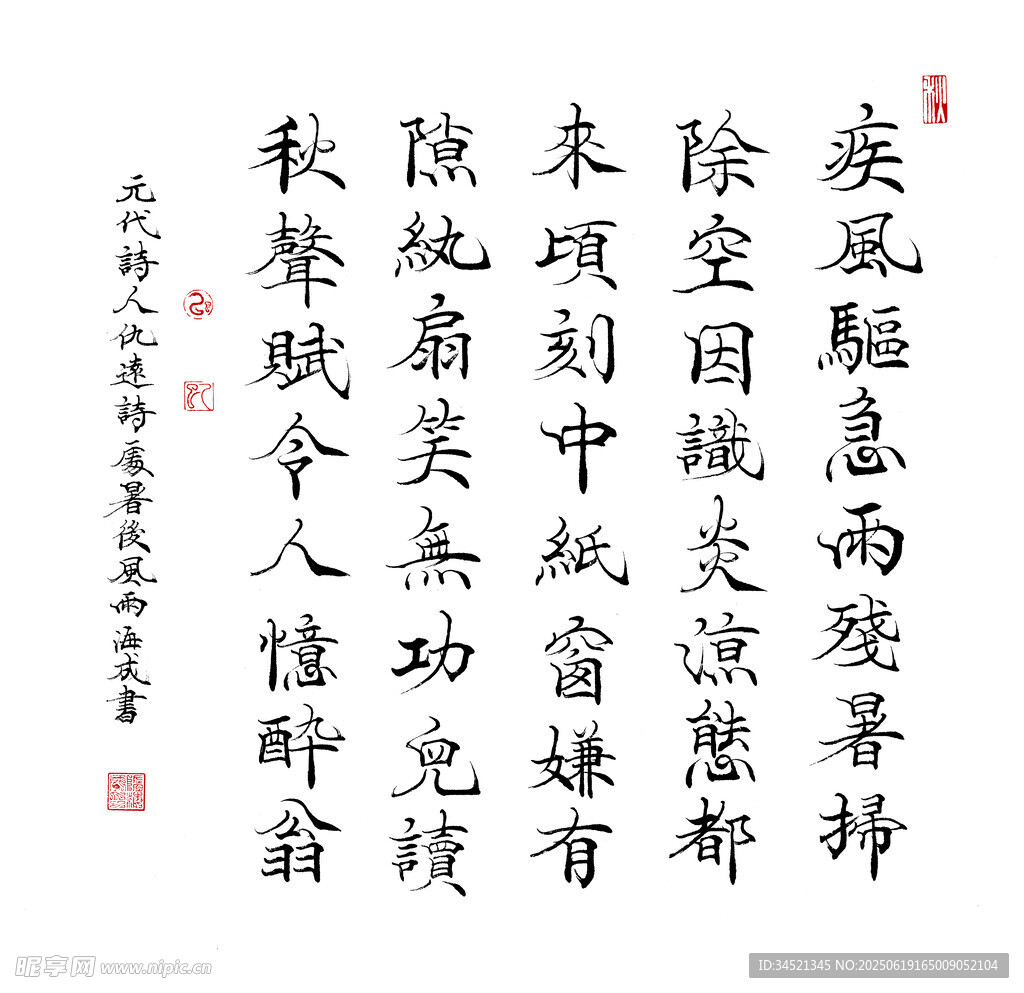 疾風驅急雨殘暑掃
除空因識炎涼態都
來頃刻中紙窗嫌有
隙紈扇笑無功兒讀
秋聲賦令人憶醉翁
元代詩人仇遠詩處暑後風雨海成書
秋
昵享网 www.nipic.cn
ID:34521345 NO:20250619165009052104